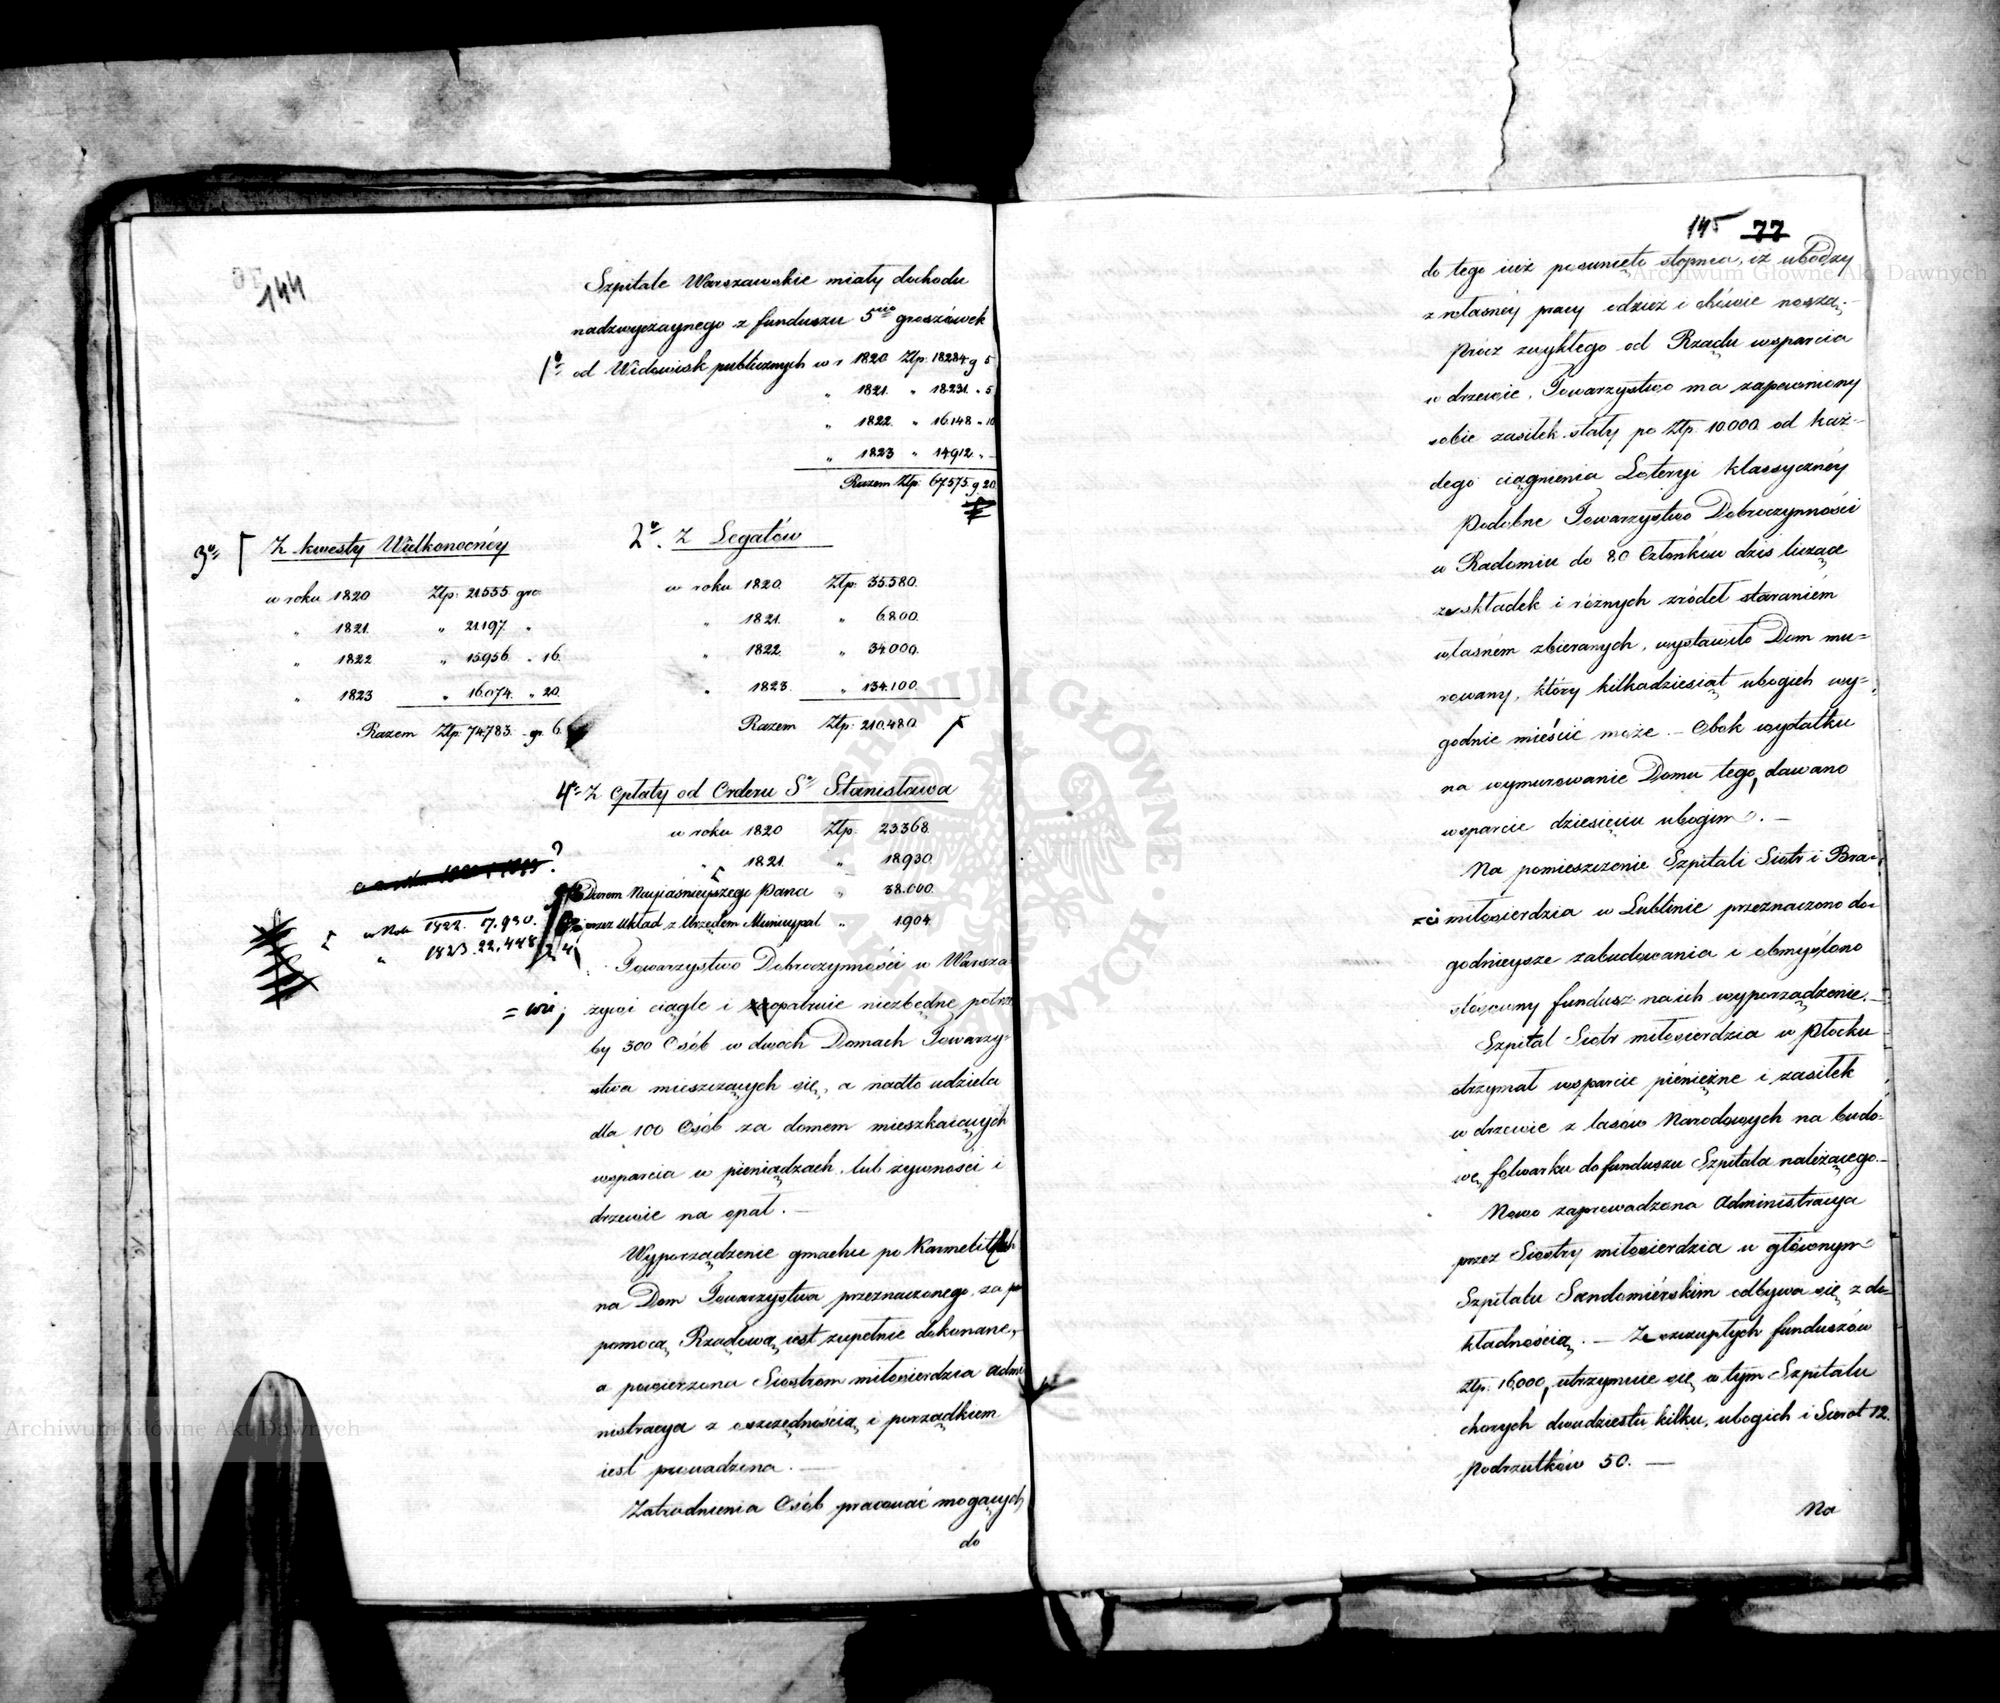 144
Szpitale Warszawskie miały dochodu
nadzwyczaynego z funduszu 5cio groszówek
1o od Widowisk publicznych w r 1820 Złp. 18284 g 5
" 1821. " 18231. " 5
" 1822. " 16148 " 10
" 1823 " 14912. " -
Razem Złp. 67575. g. 20.
2o. Z Legatów
w roku 1820. Złp. 35.580.
" 1821. " 6.800.
" 1822. " 34.000.
" 1823. " 134.100.
Razem Złp. 210.480.
3o Z kwesty Wielkonocnéy
w roku 1820 Złp. 21.555. gro
" 1821. " 21.197. "
" 1822 " 15.956. " 16.
" 1823 " 16.074. " 20.
Razem Złp. 74.783. gr. 6.
4o Z Opłaty od Orderu So Stanisława
w roku 1820 Złp. 23.368.
" 1821. " 18.930.
?
w Roku 1822. 17.930.
" 1823. 22.448
Darem Nayiaśnieyszego Pana " 38.000.
przez Układ z Urzędem Municypal " 1.904.
Towarzystwo Dobroczynności w Warsza
= wie; żywi ciągle i zaopatruie niezbędne potrze
by 300 Osób w dwóch Domach Towarzy=
stwa mieszczących się, a nadto udziela
dla 100 Osób za domem mieszkaiących
wsparcia w pieniądzach, lub żywności i
drzewie na opał. —
Wyporządzenie gmachu po Karmelitach
na Dom Towarzystwa przeznaczonego, za po
pomocą Rządową iest zupełnie dokonane,
a powierzona Siostrom miłosierdzia admi
nistracya z oszczędnością i porządkiem
iest prowadzona. —
Zatrudnienia Osób pracować mogących
do
145 77
do tego iuż posunięto stopnia, iż ubodzy
z własnéy pracy odzież i obówie noszą. —
Prócz zwykłego od Rządu wsparcia
w drzewie, Towarzystwo ma zapewniony
sobie zasiłek stały po Złp. 10.000. od każ=
dego ciągnienia Loteryi klassycznéy
Podobne Towarzystwo Dobroczynności
w Radomiu do 80 Członków dziś liczące
ze składek i różnych źródeł staraniém
własném zbieranych, wystawiło Dom mu=
rowany, który kilkadziesiąt ubogich wy=
godnie mieścić może. — Obok wydatku
na wymurowanie Domu tego, dawano
wsparcie dziesięciu ubogim. —
Na pomieszczenie Szpitali Siostr i Bra=
=ci miłosierdzia w Lublinie przeznaczono do=
godnieysze zabudowania i obmyślono
stósowny fundusz na ich wyporządzenie. —
Szpital Siostr miłosierdzia w Płocku
otrzymał wsparcie piéniężne i zasiłek
w drzewie z lasów Narodowych na budo=
wę folwarku do funduszu Szpitala należącego. —
Nowo zaprowadzona Administracya
przez Siostry miłosierdzia w głównym
Szpitalu Sandomiérskim odbywa się z do=
kładnością. — Ze szczupłych funduszów
Złp. 16,000, utrzymuie się w tym Szpitalu
chorych dwudziestu kilku, ubogich i Sierot 12.
Podrzutków 50. —
Na
Archiwum Główne Akt Dawnych
Archiwum Główne Akt Dawnych
ARCHIWUM GŁÓWNE AKT DAWNYCH